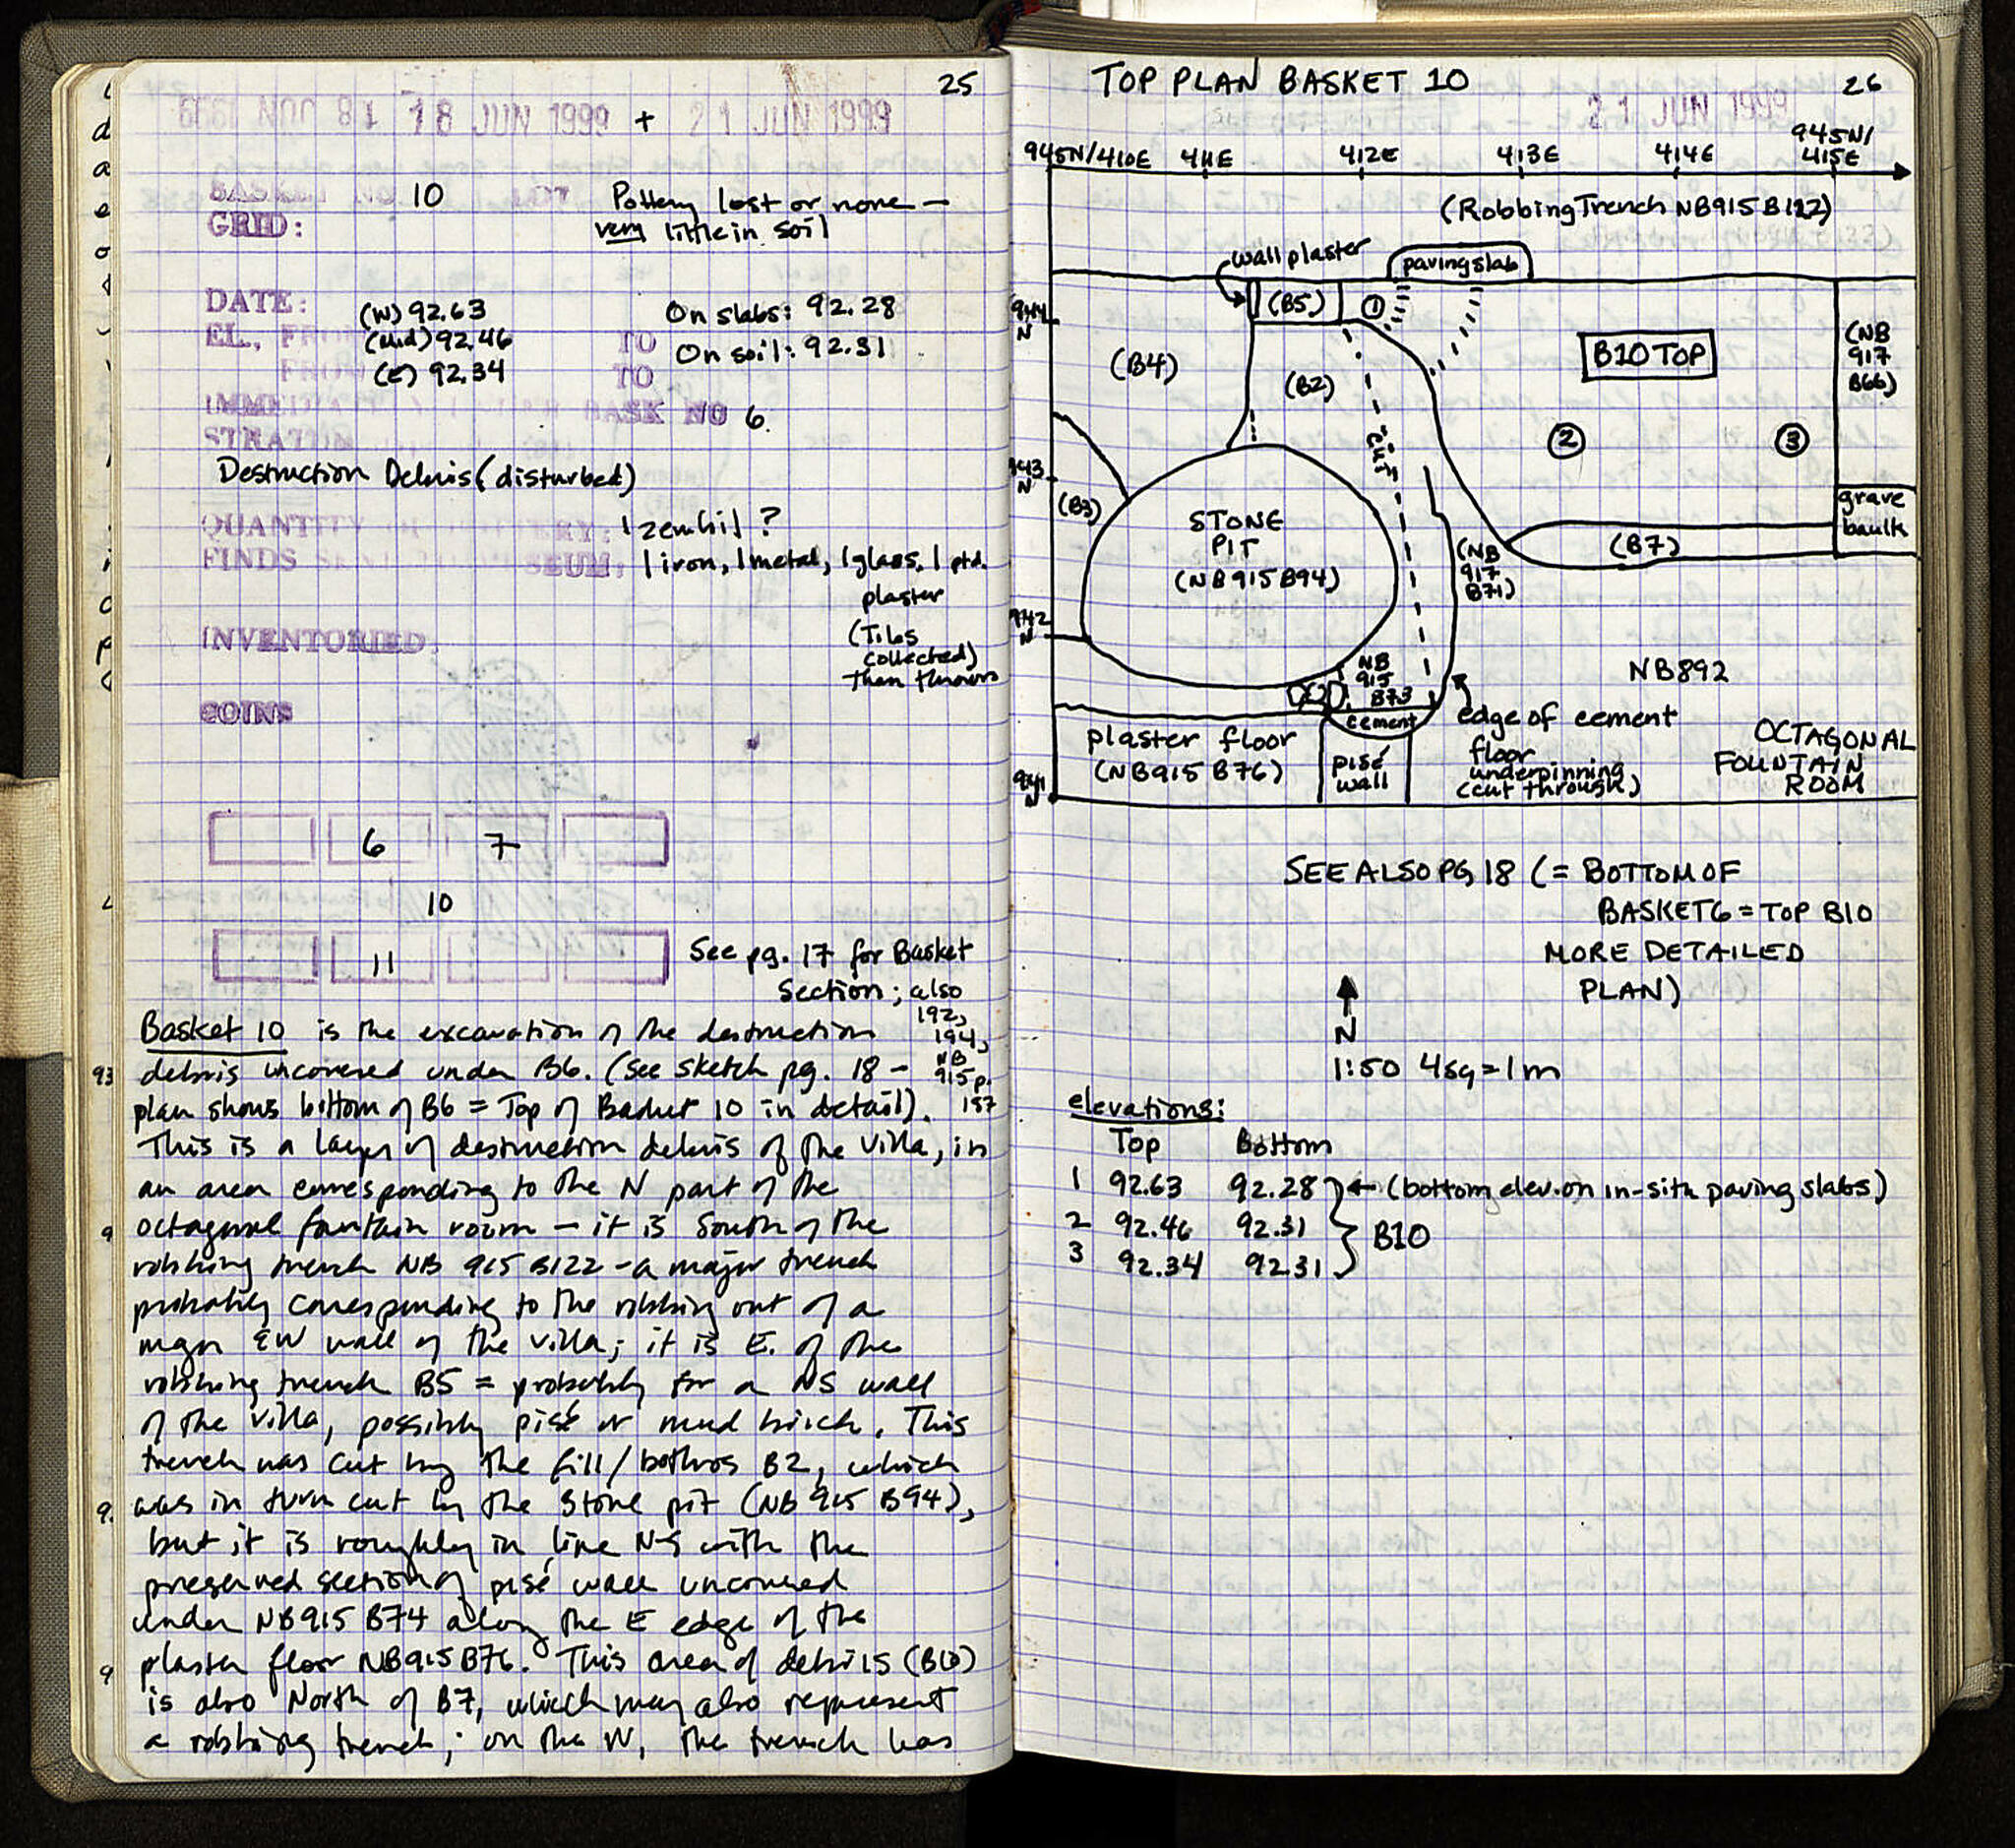 25
18 JUN 1999 + 21 JUN 1999
BASKET NO 10 LOT Pottery lost or none —
GRID: very little in soil
DATE: (W) 92.63 On slabs: 92.28
EL., FROM (Mid) 92.46 TO On soil: 92.31
FROM (E) 92.34 TO
BASK NO 6
STRATUM
Destruction Debris (disturbed)
QUANTITY OF POTTERY: 1 zembil ?
FINDS SENT TO MUSEUM: 1 iron, 1 metal, 1 glass, 1 ptd.
plaster
INVENTORIED: (Tiles
collected)
then thrown
COINS
6 7
10
11 See pg. 17 for Basket
Section; also
192,
194,
NB
915 p.
157
Basket 10 is the excavation of the destruction
debris uncovered under B6. (See sketch pg. 18 –
plan shows bottom of B6 = Top of Basket 10 in detail).
This is a layer of destruction debris of the villa, in
an area corresponding to the N part of the
octagonal fountain room – it is South of the
robbing trench NB 915 B122 - a major trench
probably corresponding to the robbing out of a
major EW wall of the villa; it is E. of the
robbing trench B5 = probably for a NS wall
of the villa, possibly pisé or mud brick. This
trench was cut by the fill/bothros B2, which
was in turn cut by the stone pit (NB 915 B94),
but it is roughly in line N-S with the
preserved section of pisé wall uncovered
under NB915 B74 along the E edge of the
plaster floor NB915B76. This area of debris (B10)
is also North of B7, which may also represent
a robbing trench; on the W, the trench has
TOP PLAN BASKET 10 26
21 JUN 1999
945N/410E 411E 412E 413E 414E 945N/
415E
(Robbing Trench NB915 B122)
wall plaster
paving slab
944
N
(B5) 1
(B4) (B2) B10 TOP
(NB
917
B66)
cut
2 3
943
N
(B3)
STONE
PIT
(NB915B94)
(NB
917
B71)
(B7)
grave
baulk
942
N
NB
915
B73
NB892
cement
plaster floor
(NB915 B76)
pisé
wall
edge of cement
floor
underpinning
(cut through)
OCTAGONAL
FOUNTAIN
ROOM
941
N
SEE ALSO PG 18 (= BOTTOM OF
BASKET 6 = TOP B10
MORE DETAILED
PLAN)
N
1:50 4sq = 1m
elevations:
Top Bottom
1 92.63 92.28 ← (bottom elev. on in-situ paving slabs)
2 92.46 92.31 B10
3 92.34 92.31